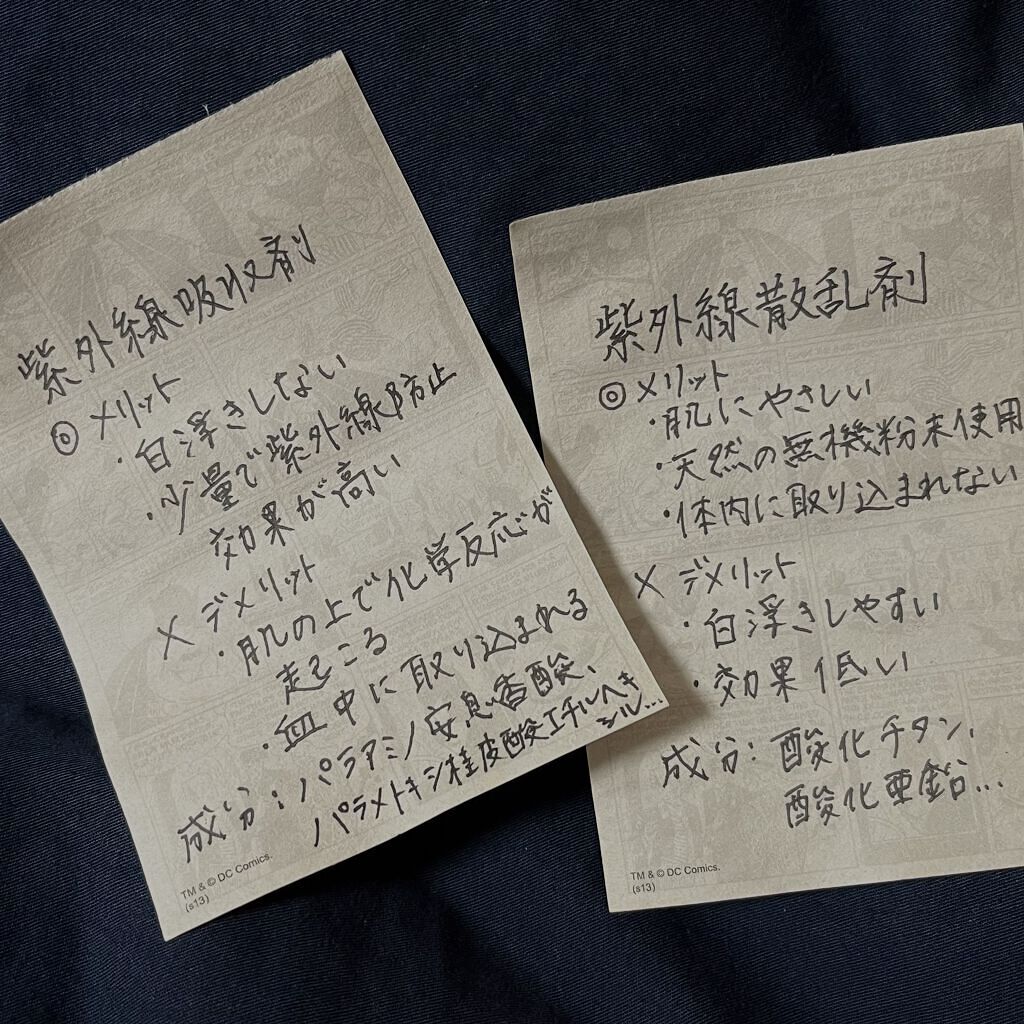 紫外線吸収剤
◎ メリット
・白浮きしない
・少量で紫外線防止
効果が高い
× デメリット
・肌の上で化学反応が
起こる
・血中に取り込まれる
成分：パラアミノ安息香酸、
パラメトキシ桂皮酸エチルヘキ
シル...
TM & © DC Comics.
(s13)
紫外線散乱剤
◎ メリット
・肌にやさしい
・天然の無機粉末使用
・体内に取り込まれない
× デメリット
・白浮きしやすい
・効果低い
成分：酸化チタン、
酸化亜鉛...
TM & © DC Comics.
(s13)